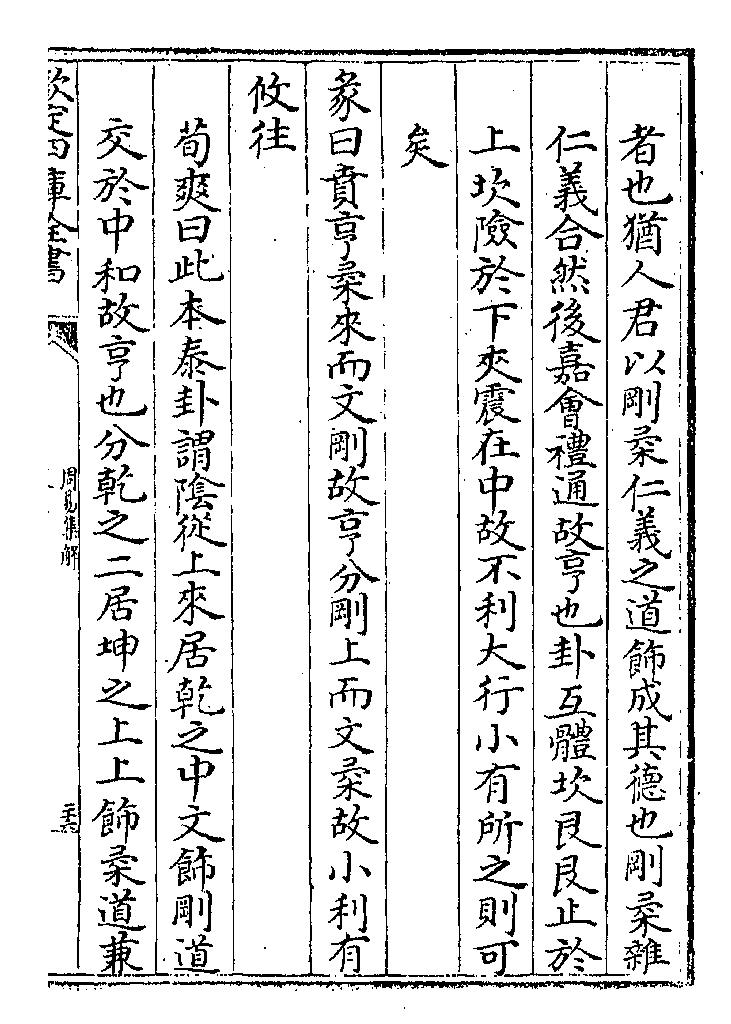 者也猶人君以剛柔仁義之道飾成其德也剛柔雜
仁義合然後嘉會禮通故亨也卦互體坎艮艮止於
上坎險於下夾震在中故不利大行小有所之則可
矣
彖曰賁亨柔來而文剛故亨分剛上而文柔故小利有
攸往
荀爽曰此本泰卦謂陰從上來居乾之中文飾剛道
交於中和故亨也分乾之二居坤之上上飾柔道兼
欽定四庫全書
周易集解